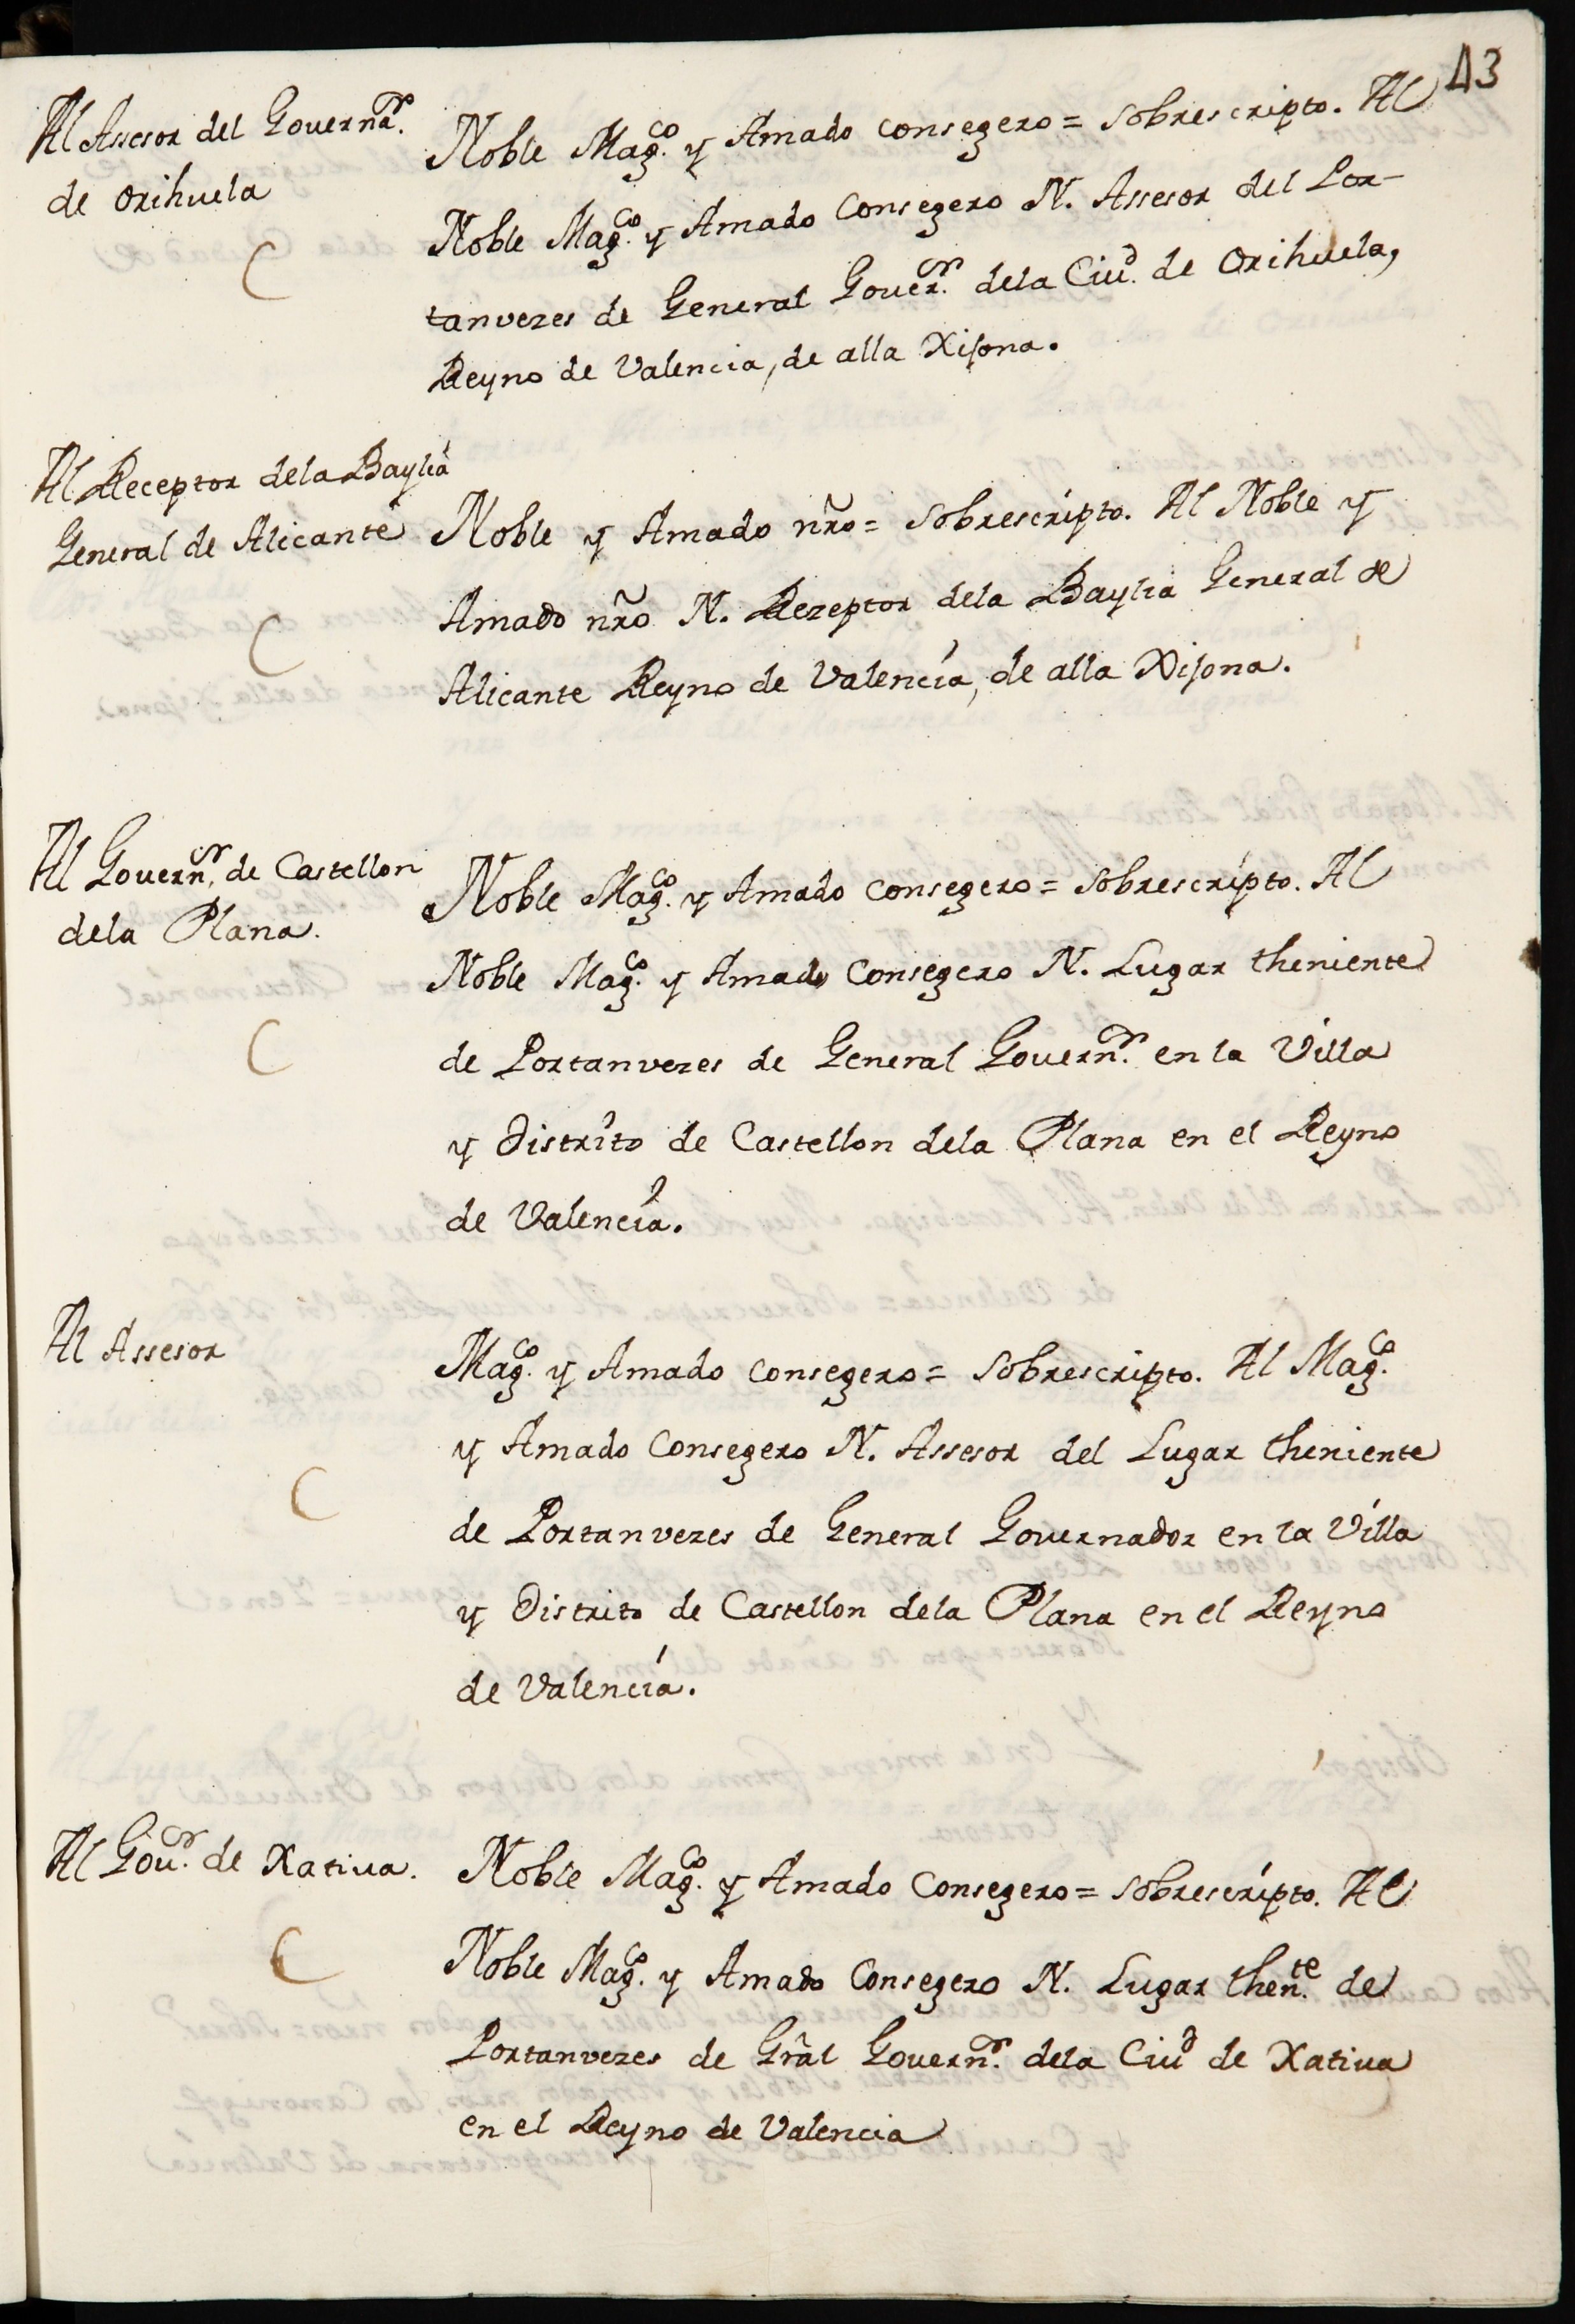 43
Al Assesor del Governa.ᵒʳ
de Orihuela
C
Noble Mag.ᶜᵒ y Amado Consegero = Sobrescripto. Al
Noble Mag.ᶜᵒ y Amado Consegero N. Assesor del Por-
tanvezes de General Gover.ᵒʳ dela Ciu.ᵈ de Orihuela,
Reyno de Valencia, de alla Xisona.
Al Receptor dela Baylia
General de Alicante
C
Noble y Amado nr̃o = Sobrescripto. Al Noble y
Amado nr̃o N. Rezeptor dela Baylia General de
Alicante Reyno de Valencia, de alla Xisona.
Al Govern.ᵒʳ de Castellon
dela Plana.
C
Noble Mag.ᶜᵒ y Amado Consegero = Sobrescripto. Al
Noble Mag.ᶜᵒ y Amado Consegero N. Lugar theniente
de Portanvezes de General Govern.ᵒʳ en la Villa
y Distrito de Castellon dela Plana en el Reyno
de Valencia.
Al Assesor
C
Mag.ᶜᵒ y Amado Consegero = Sobrescripto. Al Mag.ᶜᵒ
y Amado Consegero N. Assesor del Lugar theniente
de Portanvezes de General Governador en la Villa
y Distrito de Castellon dela Plana en el Reyno
de Valencia.
Al Gov.ᵒʳ de Xativa.
C
Noble Mag.ᶜᵒ y Amado Consegero = Sobrescripto. Al
Noble Mag.ᶜᵒ y Amado Consegero N. Lugar then.ᵗᵉ de
Portanvezes de Gr̃al Govern.ᵒʳ dela Ciuᵈ de Xativa
en el Reyno de Valencia